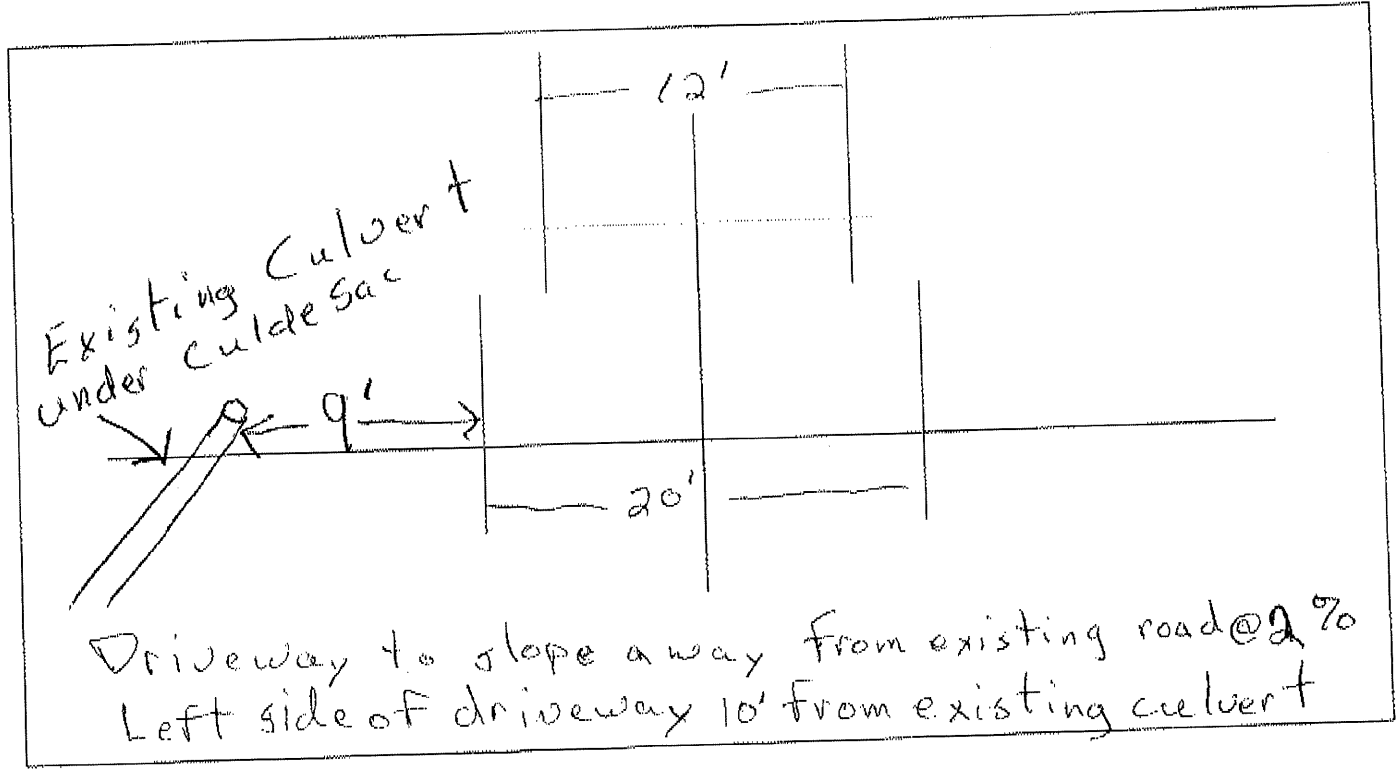 12'
Existing Culvert
under culdesac
9'
20'
Driveway to slope away from existing road @ 2%
Left side of driveway 10' from existing culvert